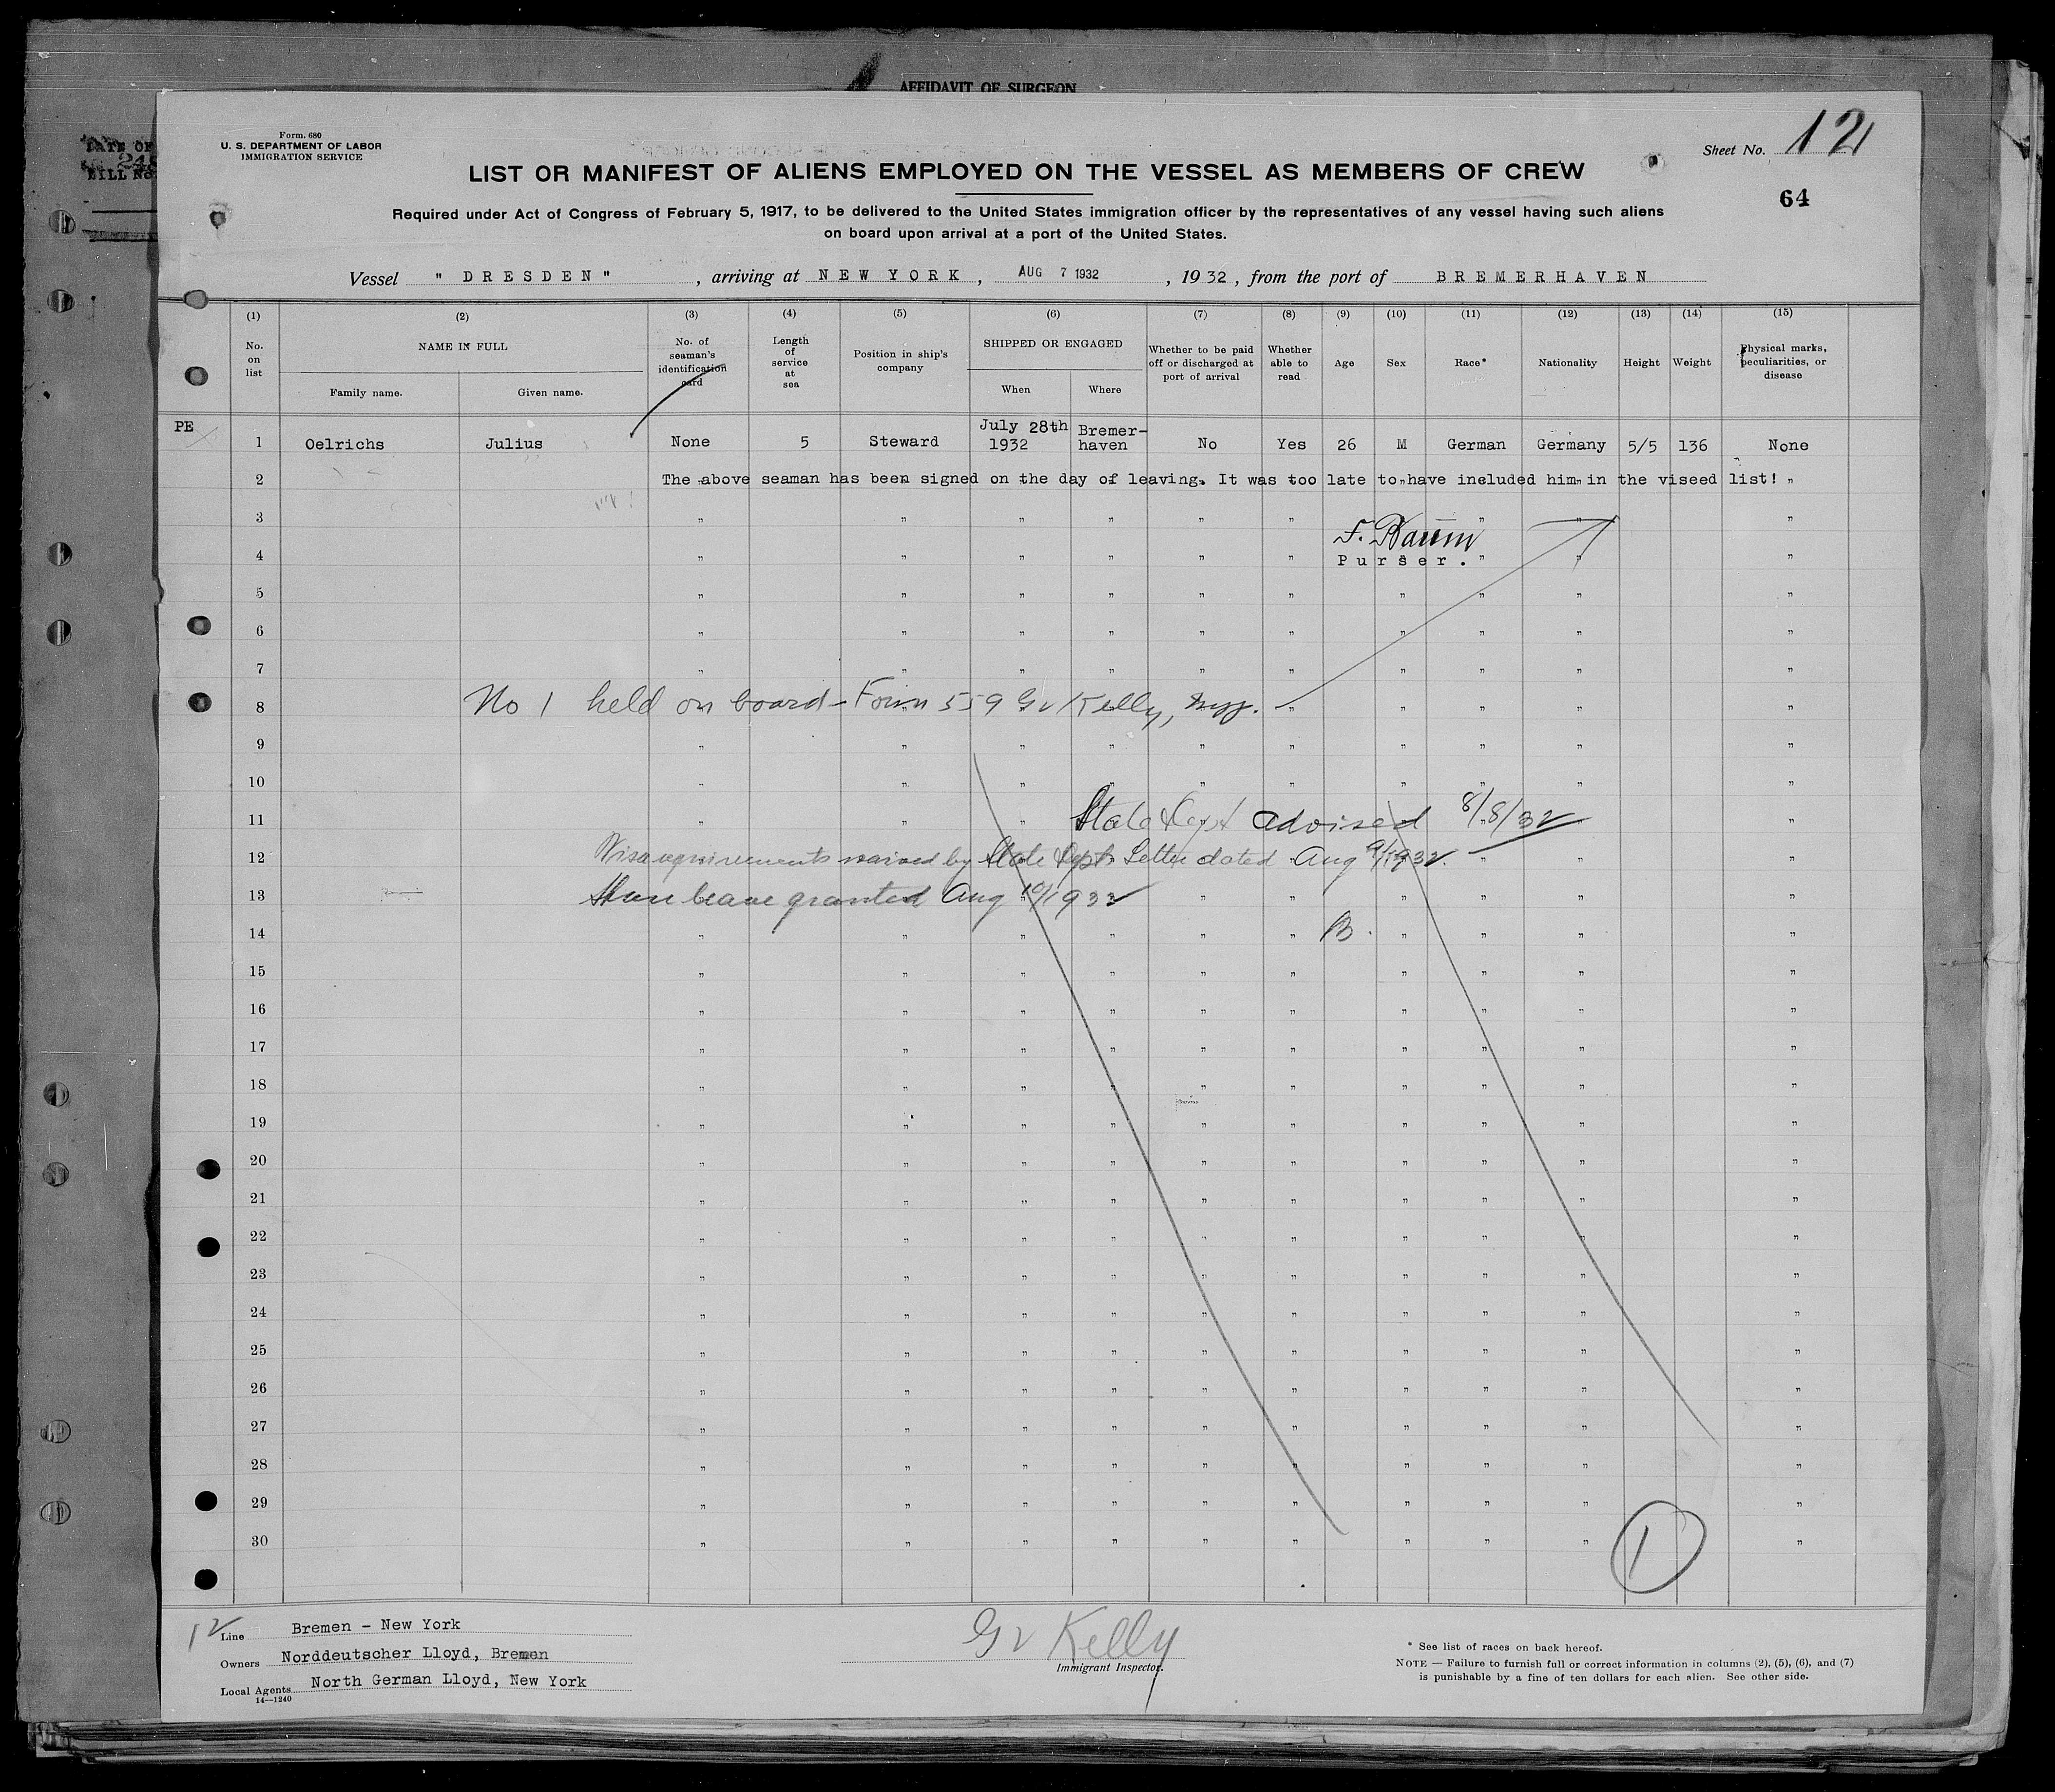 AFFIDAVIT OF SURGEON
Form. 680
U. S. DEPARTMENT OF LABOR
IMMIGRATION SERVICE
Sheet No. 12
64
LIST OR MANIFEST OF ALIENS EMPLOYED ON THE VESSEL AS MEMBERS OF CREW
Required under Act of Congress of February 5, 1917, to be delivered to the United States immigration officer by the representatives of any vessel having such aliens
on board upon arrival at a port of the United States.
Vessel " DRESDEN " , arriving at NEW YORK , AUG 7 1932 , 1932 , from the port of BREMERHAVEN
(1) (2) (3) (4) (5) (6) (7) (8) (9) (10) (11) (12) (13) (14) (15)
No. on list
NAME IN FULL
Family name. Given name.
No. of seaman's identification card
Length of service at sea
Position in ship's company
SHIPPED OR ENGAGED
When Where
Whether to be paid off or discharged at port of arrival
Whether able to read
Age
Sex
Race*
Nationality
Height
Weight
Physical marks, peculiarities, or disease
PE
1 Oelrichs Julius None 5 Steward July 28th 1932 Bremer-haven No Yes 26 M German Germany 5/5 136 None
2 The above seaman has been signed on the day of leaving. It was too late to have included him in the viseed list!
3
F. Baum
4 Purser.
5
6
7
8 No 1 held on board - Form 559 GV Kelly, Insp.
9
10
11 State Dept advised 8/8/32
12 Visa requirements waived by State Dept. Letter dated Aug 9/1932.
13 Shore leave granted Aug 10/1932
14 B.
15
16
17
18
19
20
21
22
23
24
25
26
27
28
29
30
1
12
Line Bremen - New York
Owners Norddeutscher Lloyd, Bremen
Local Agents North German Lloyd, New York
14--1240
GV Kelly
Immigrant Inspector.
* See list of races on back hereof.
NOTE — Failure to furnish full or correct information in columns (2), (5), (6), and (7)
is punishable by a fine of ten dollars for each alien. See other side.